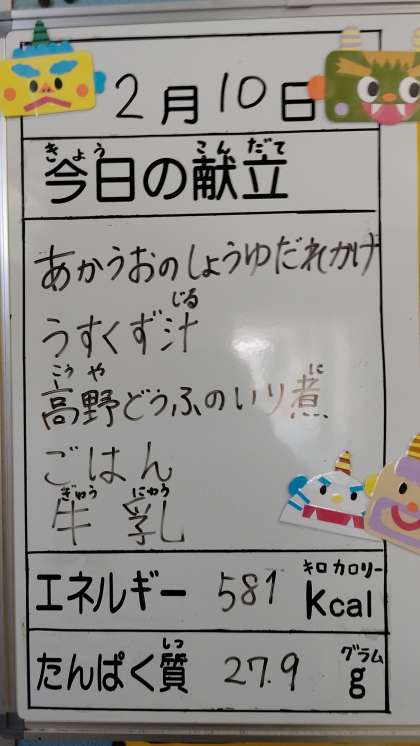 2月10日
きょう こんだて
今日の献立
あかうおのしょうゆだれかけ
じる
うすくず汁
こうや に
高野どうふのいり煮
ごはん
ぎゅう にゅう
牛 乳
キロカロリー
エネルギー 581 kcal
しつ グラム
たんぱく質 27.9 g